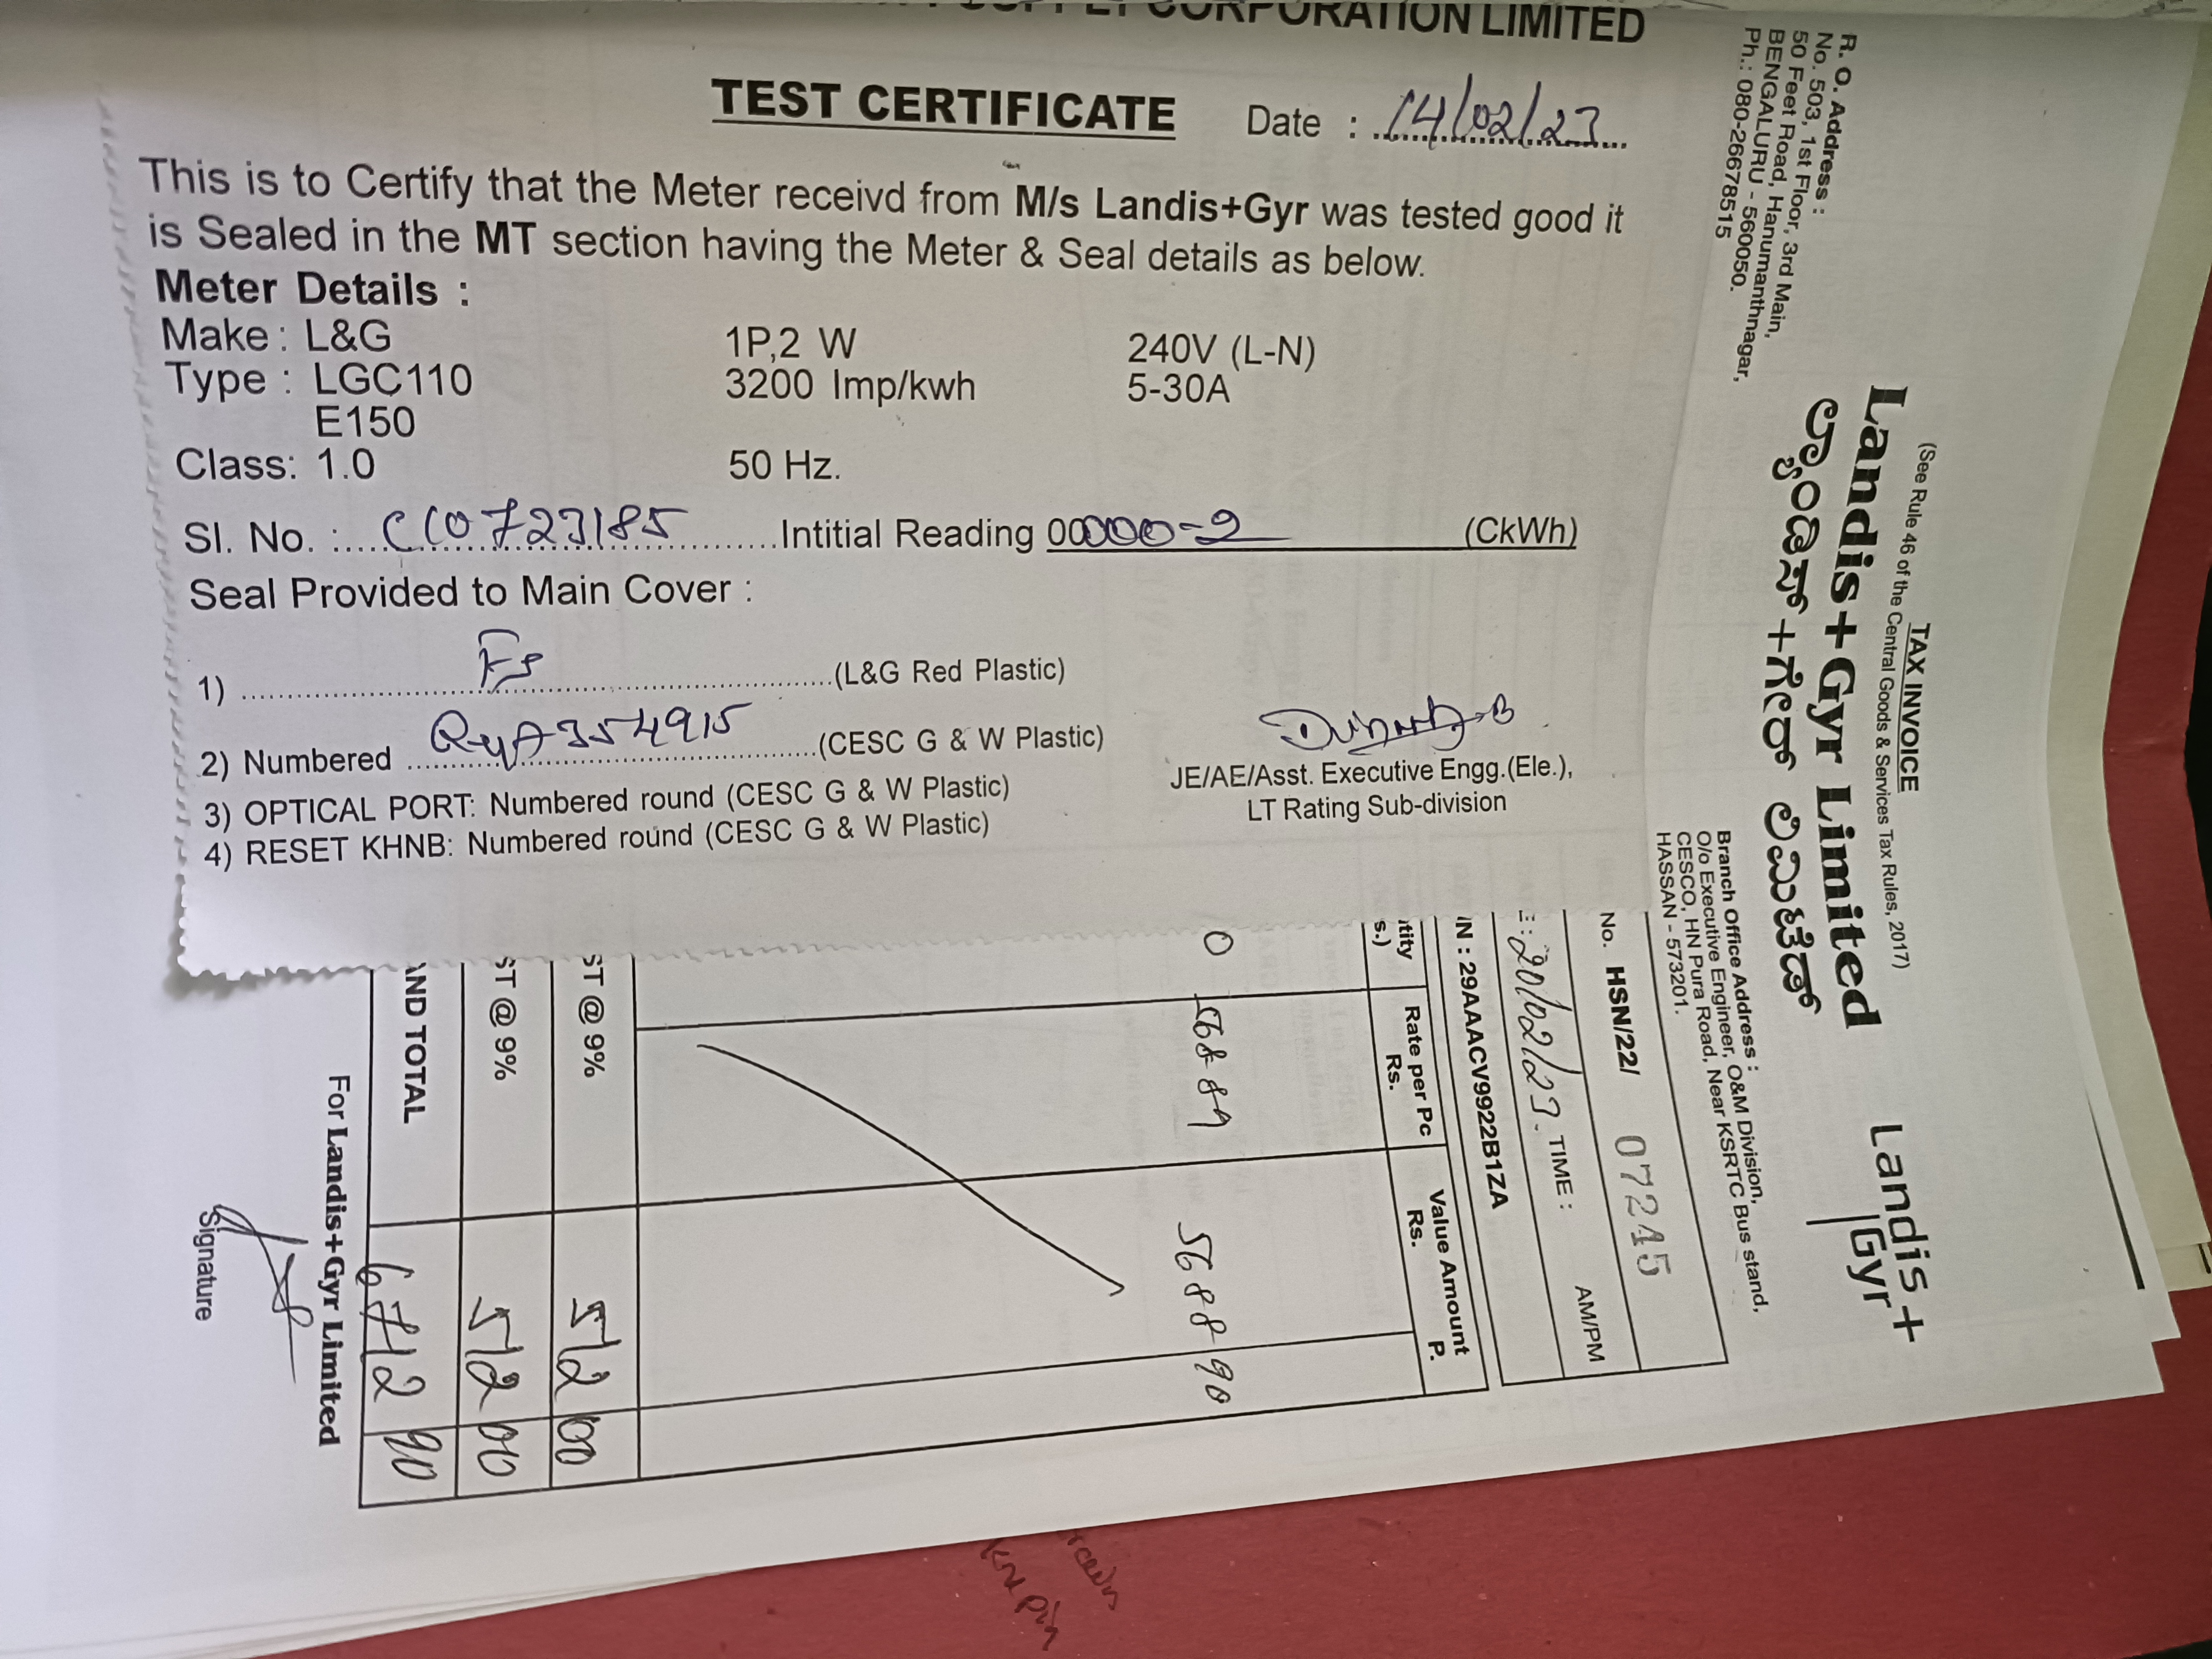 SUPPLY CORPORATION LIMITED
TEST CERTIFICATE Date : 14/02/23
This is to Certify that the Meter receivd from M/s Landis+Gyr was tested good it
is Sealed in the MT section having the Meter & Seal details as below.
Meter Details :
Make : L&G 1P,2 W 240V (L-N)
Type : LGC110 3200 Imp/kwh 5-30A
E150
Class: 1.0 50 Hz.
Sl. No. : CC0723185 Intitial Reading 00000-2 (CkWh)
Seal Provided to Main Cover :
1) Fs (L&G Red Plastic)
2) Numbered 354915 (CESC G & W Plastic)
3) OPTICAL PORT: Numbered round (CESC G & W Plastic)
4) RESET KHNB: Numbered round (CESC G & W Plastic)
JE/AE/Asst. Executive Engg.(Ele.),
LT Rating Sub-division
TAX INVOICE
(See Rule 46 of the Central Goods & Services Tax Rules, 2017)
Landis+Gyr Limited
ಲ್ಯಾಂಡಿಸ್+ಗೇರ್ ಲಿಮಿಟೆಡ್
Landis+
Gyr
R. O. Address :
No. 503, 1st Floor, 3rd Main,
50 Feet Road, Hanumanthnagar,
BENGALURU - 560050.
Ph.: 080-26678515
Branch Office Address :
O/o Executive Engineer, O&M Division,
CESCO, HN Pura Road, Near KSRTC Bus stand,
HASSAN - 573201.
No. HSN/22/ 07245
E : 20/02/23. TIME : AM/PM
IN : 29AAACV9922B1ZA
ntity s.) Rate per Pc Rs. Value Amount Rs. P.
0 568 89 5688 90
ST @ 9% 512 00
ST @ 9% 512 00
AND TOTAL 6712 90
For Landis+Gyr Limited
Signature